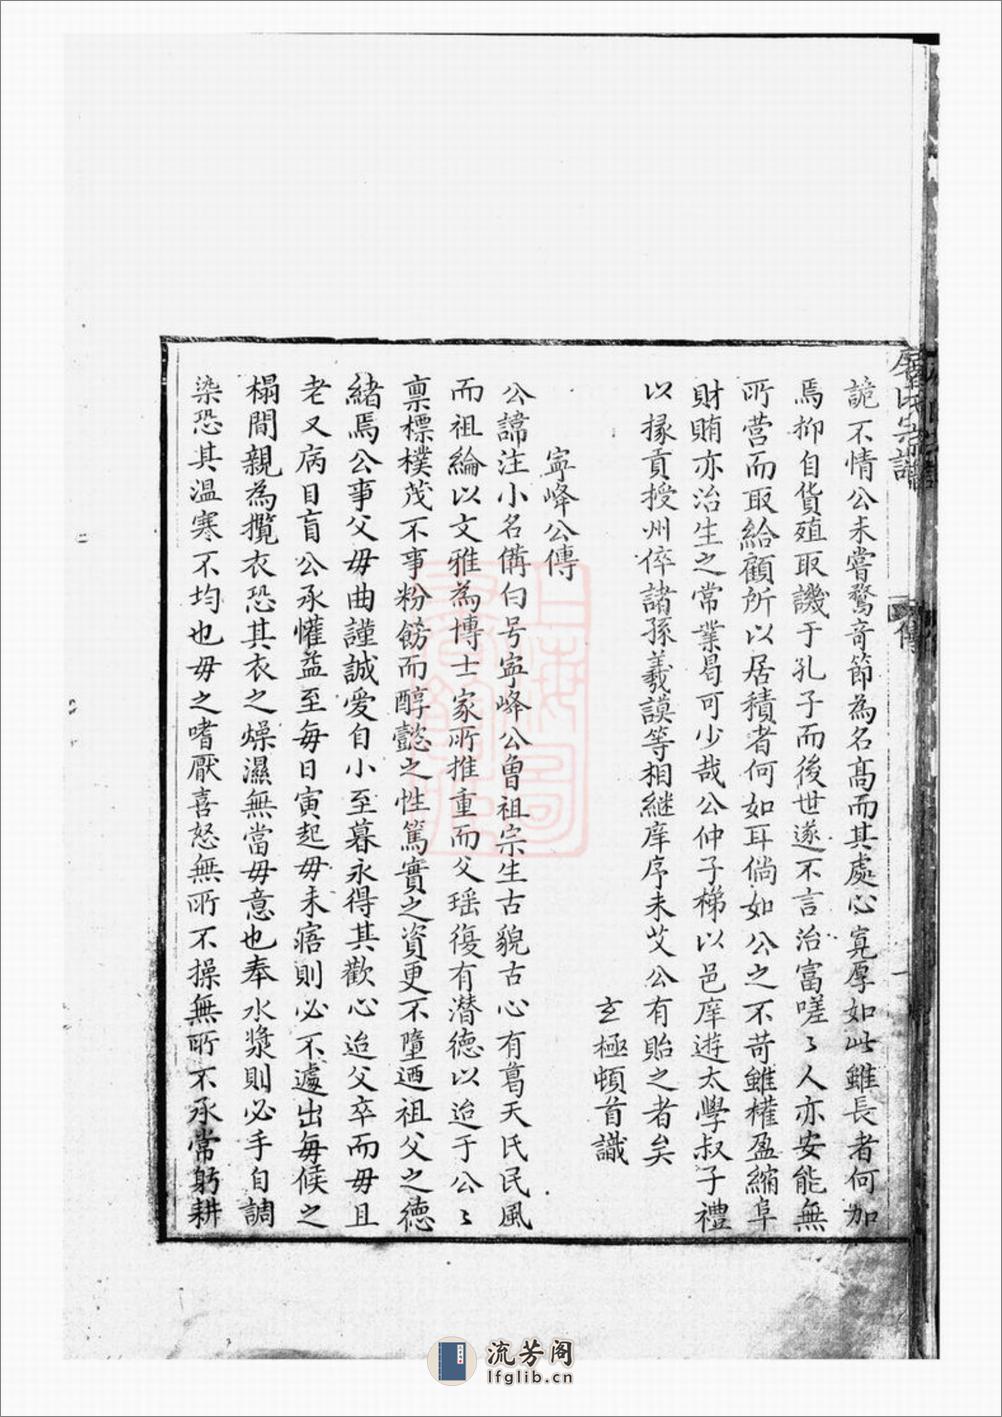 詭不情公未嘗騖奇節為名高而其處心寬厚如此雖長者何加
焉抑自貨殖取譏于孔子而後世遂不言治富嗟〻人亦安能無
所营而取給顧所以居積者何如耳倘如公之不苛雖權盈縮阜
財賄亦治生之常業曷可少哉公仲子梯以邑庠遊太學叔子禮
以掾貢授州倅諸孫羲謨等相継庠序未艾公有貽之者矣
玄極頓首識
寕峰公傳
公諱注小名僃白号寕峰公曾祖宗生古貌古心有葛天氏民風
而祖綸以文雅為博士家所推重而父瑶復有潜德以迨于公〻
禀標樸茂不事粉餙而醇懿之性篤實之資更不墮迺祖父之德
緒焉公事父毋曲謹誠爱自小至暮永得其歡心迨父卒而毋且
老又病目盲公承懽益至毎日寅起毋未寤則必不遽出毎候之
榻間親為攬衣恐其衣之燥濕無當毋意也奉水漿則必手自調
染恐其温寒不均也毋之嗜厭喜怒無所不操無所不承常躬耕
氏宗譜
傳
流芳阁
lfglib.cn